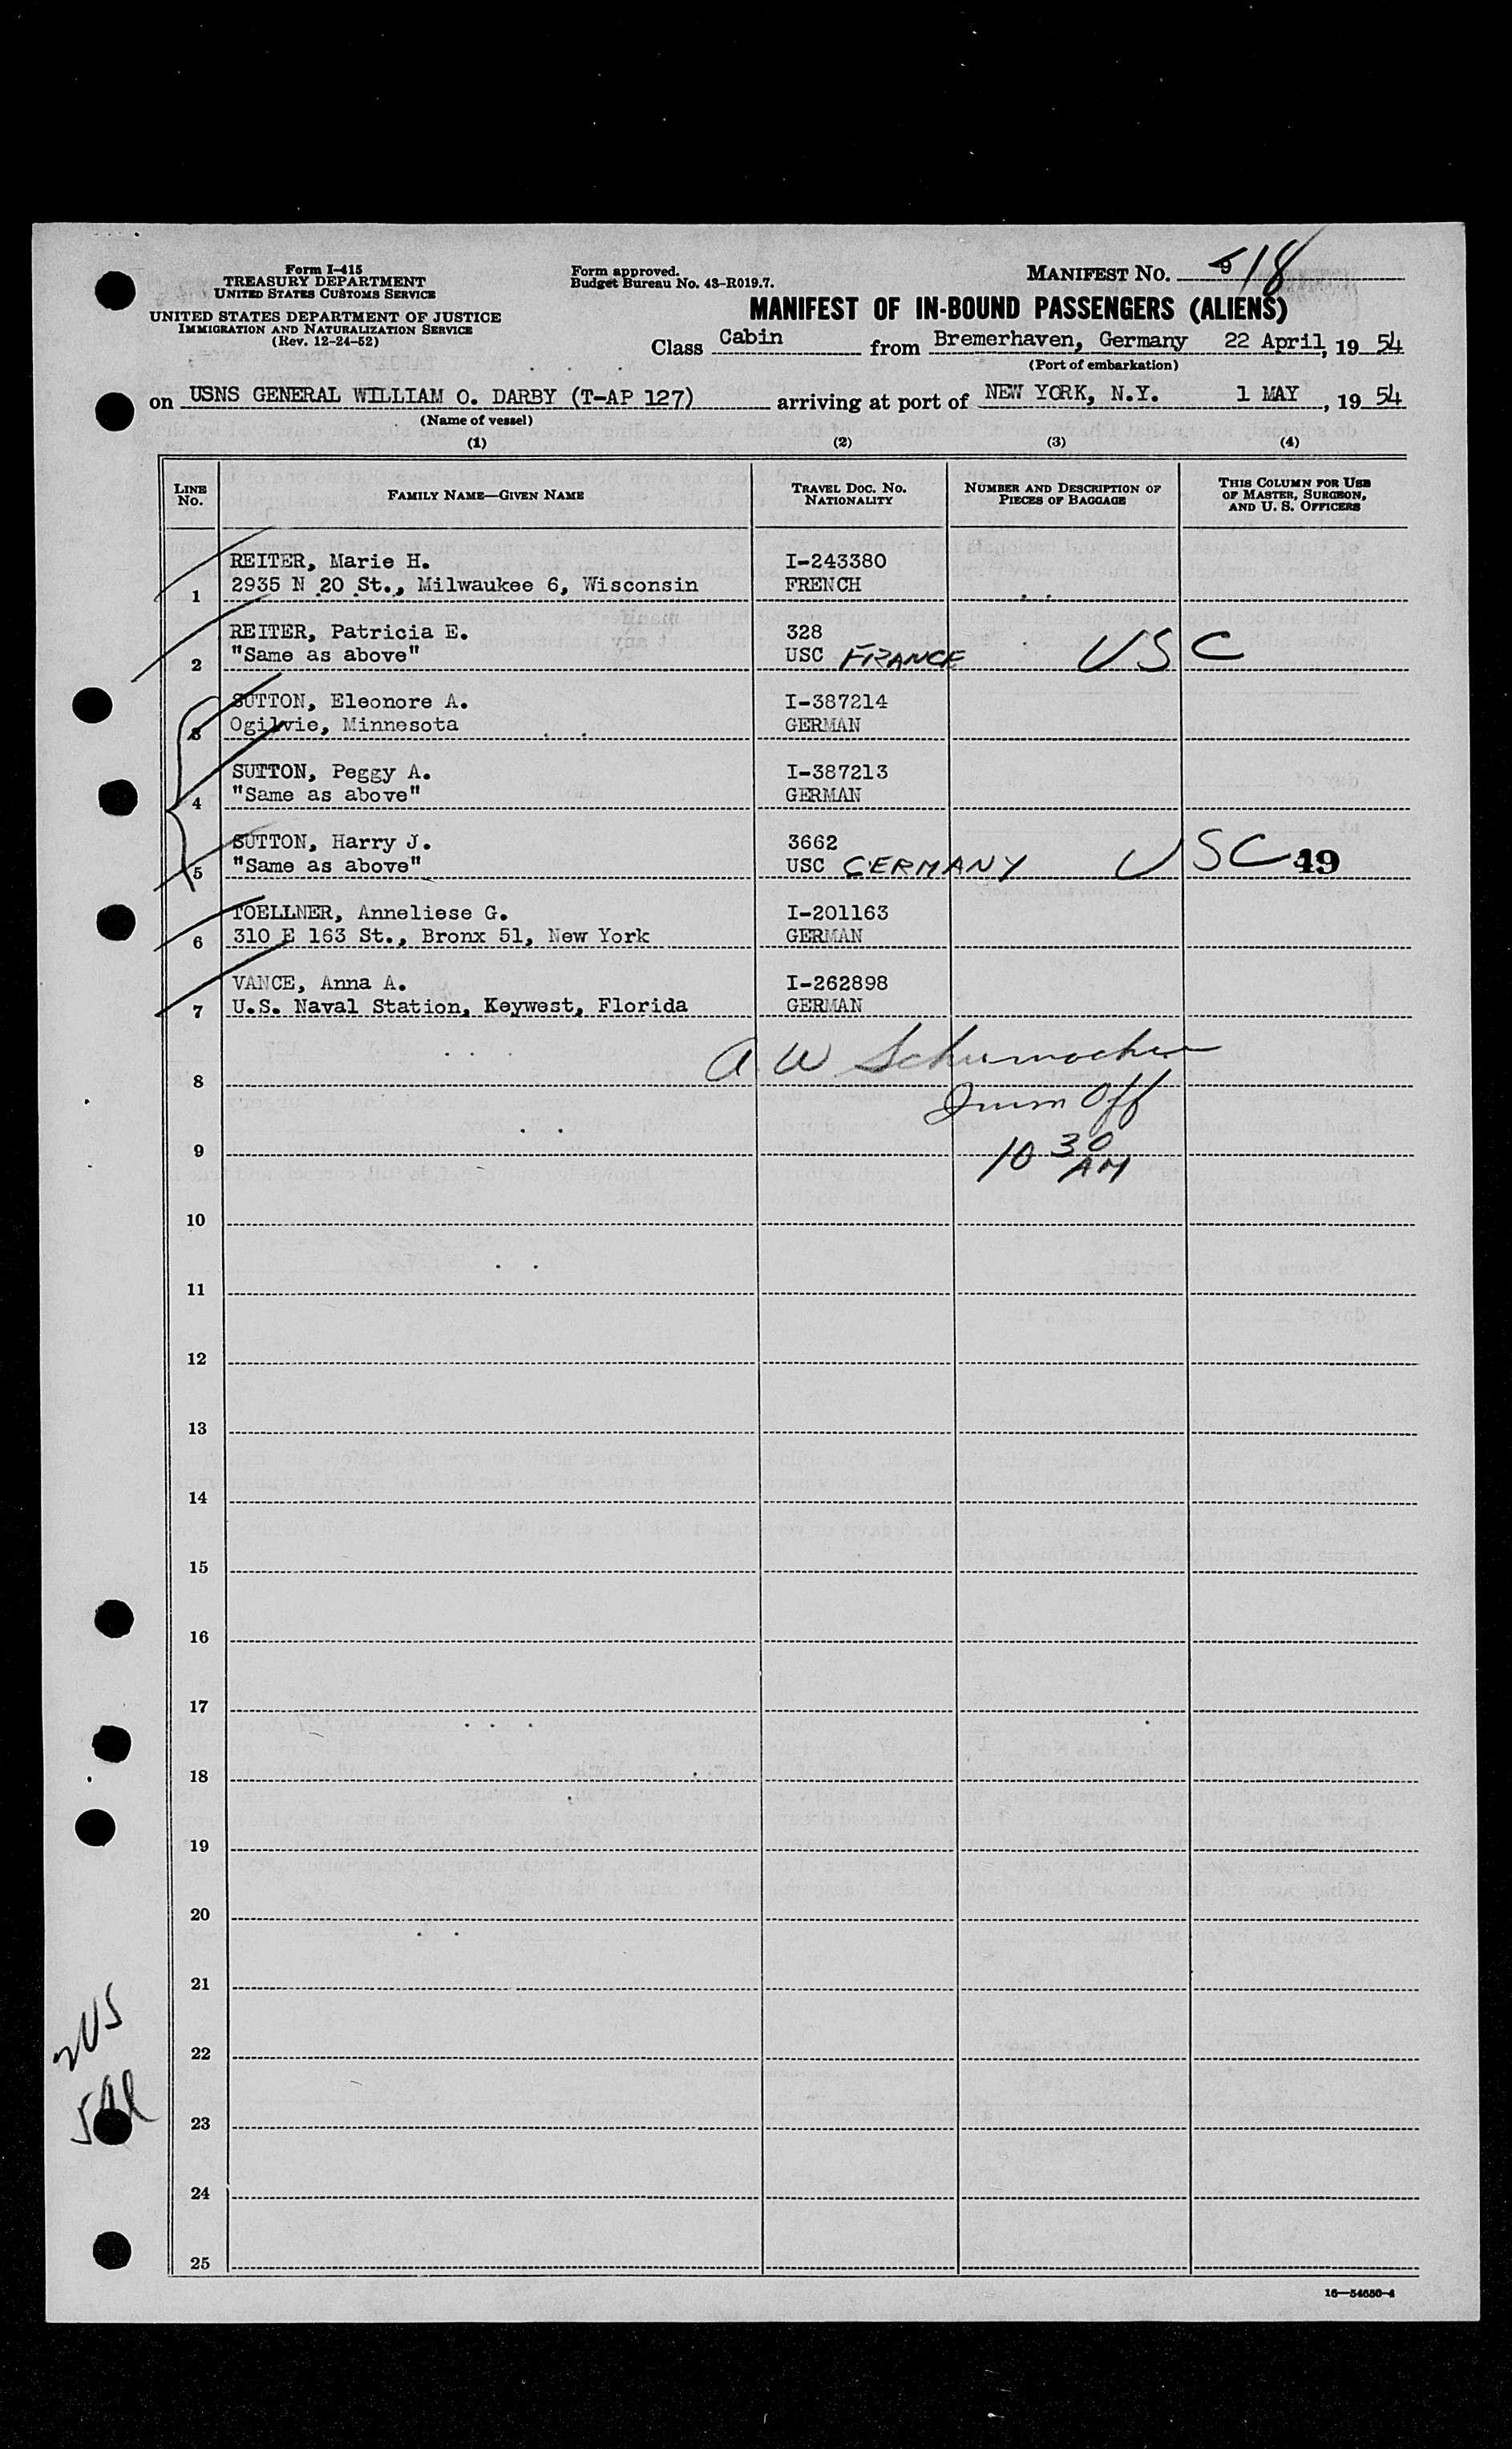 Form I-415
TREASURY DEPARTMENT
UNITED STATES CUSTOMS SERVICE
UNITED STATES DEPARTMENT OF JUSTICE
IMMIGRATION AND NATURALIZATION SERVICE
(Rev. 12-24-52)
Form approved.
Budget Bureau No. 43-R019.7.
MANIFEST NO. 18
MANIFEST OF IN-BOUND PASSENGERS (ALIENS)
Class Cabin from Bremerhaven, Germany 22 April, 19 54
(Port of embarkation)
on USNS GENERAL WILLIAM O. DARBY (T-AP 127) arriving at port of NEW YORK, N.Y. 1 MAY, 19 54
(Name of vessel)
(1) (2) (3) (4)
LINE NO. FAMILY NAME—GIVEN NAME TRAVEL DOC. NO. NATIONALITY NUMBER AND DESCRIPTION OF PIECES OF BAGGAGE THIS COLUMN FOR USE OF MASTER, SURGEON, AND U. S. OFFICERS
REITER, Marie H. I-243380
1 2935 N 20 St., Milwaukee 6, Wisconsin FRENCH
REITER, Patricia E. 328
2 "Same as above" USC FRANCE USC
SUTTON, Eleonore A. I-387214
3 Ogilvie, Minnesota GERMAN
SUTTON, Peggy A. I-387213
4 "Same as above" GERMAN
SUTTON, Harry J. 3662
5 "Same as above" USC GERMANY USC 49
TOELLNER, Anneliese G. I-201163
6 310 E 163 St., Bronx 51, New York GERMAN
VANCE, Anna A. I-262898
7 U.S. Naval Station, Keywest, Florida GERMAN
A W Schumacher
8
Imm Off
9 10 30 AM
10
11
12
13
14
15
16
17
18
19
20
21
2 US
22
23
24
25
16—54650-4